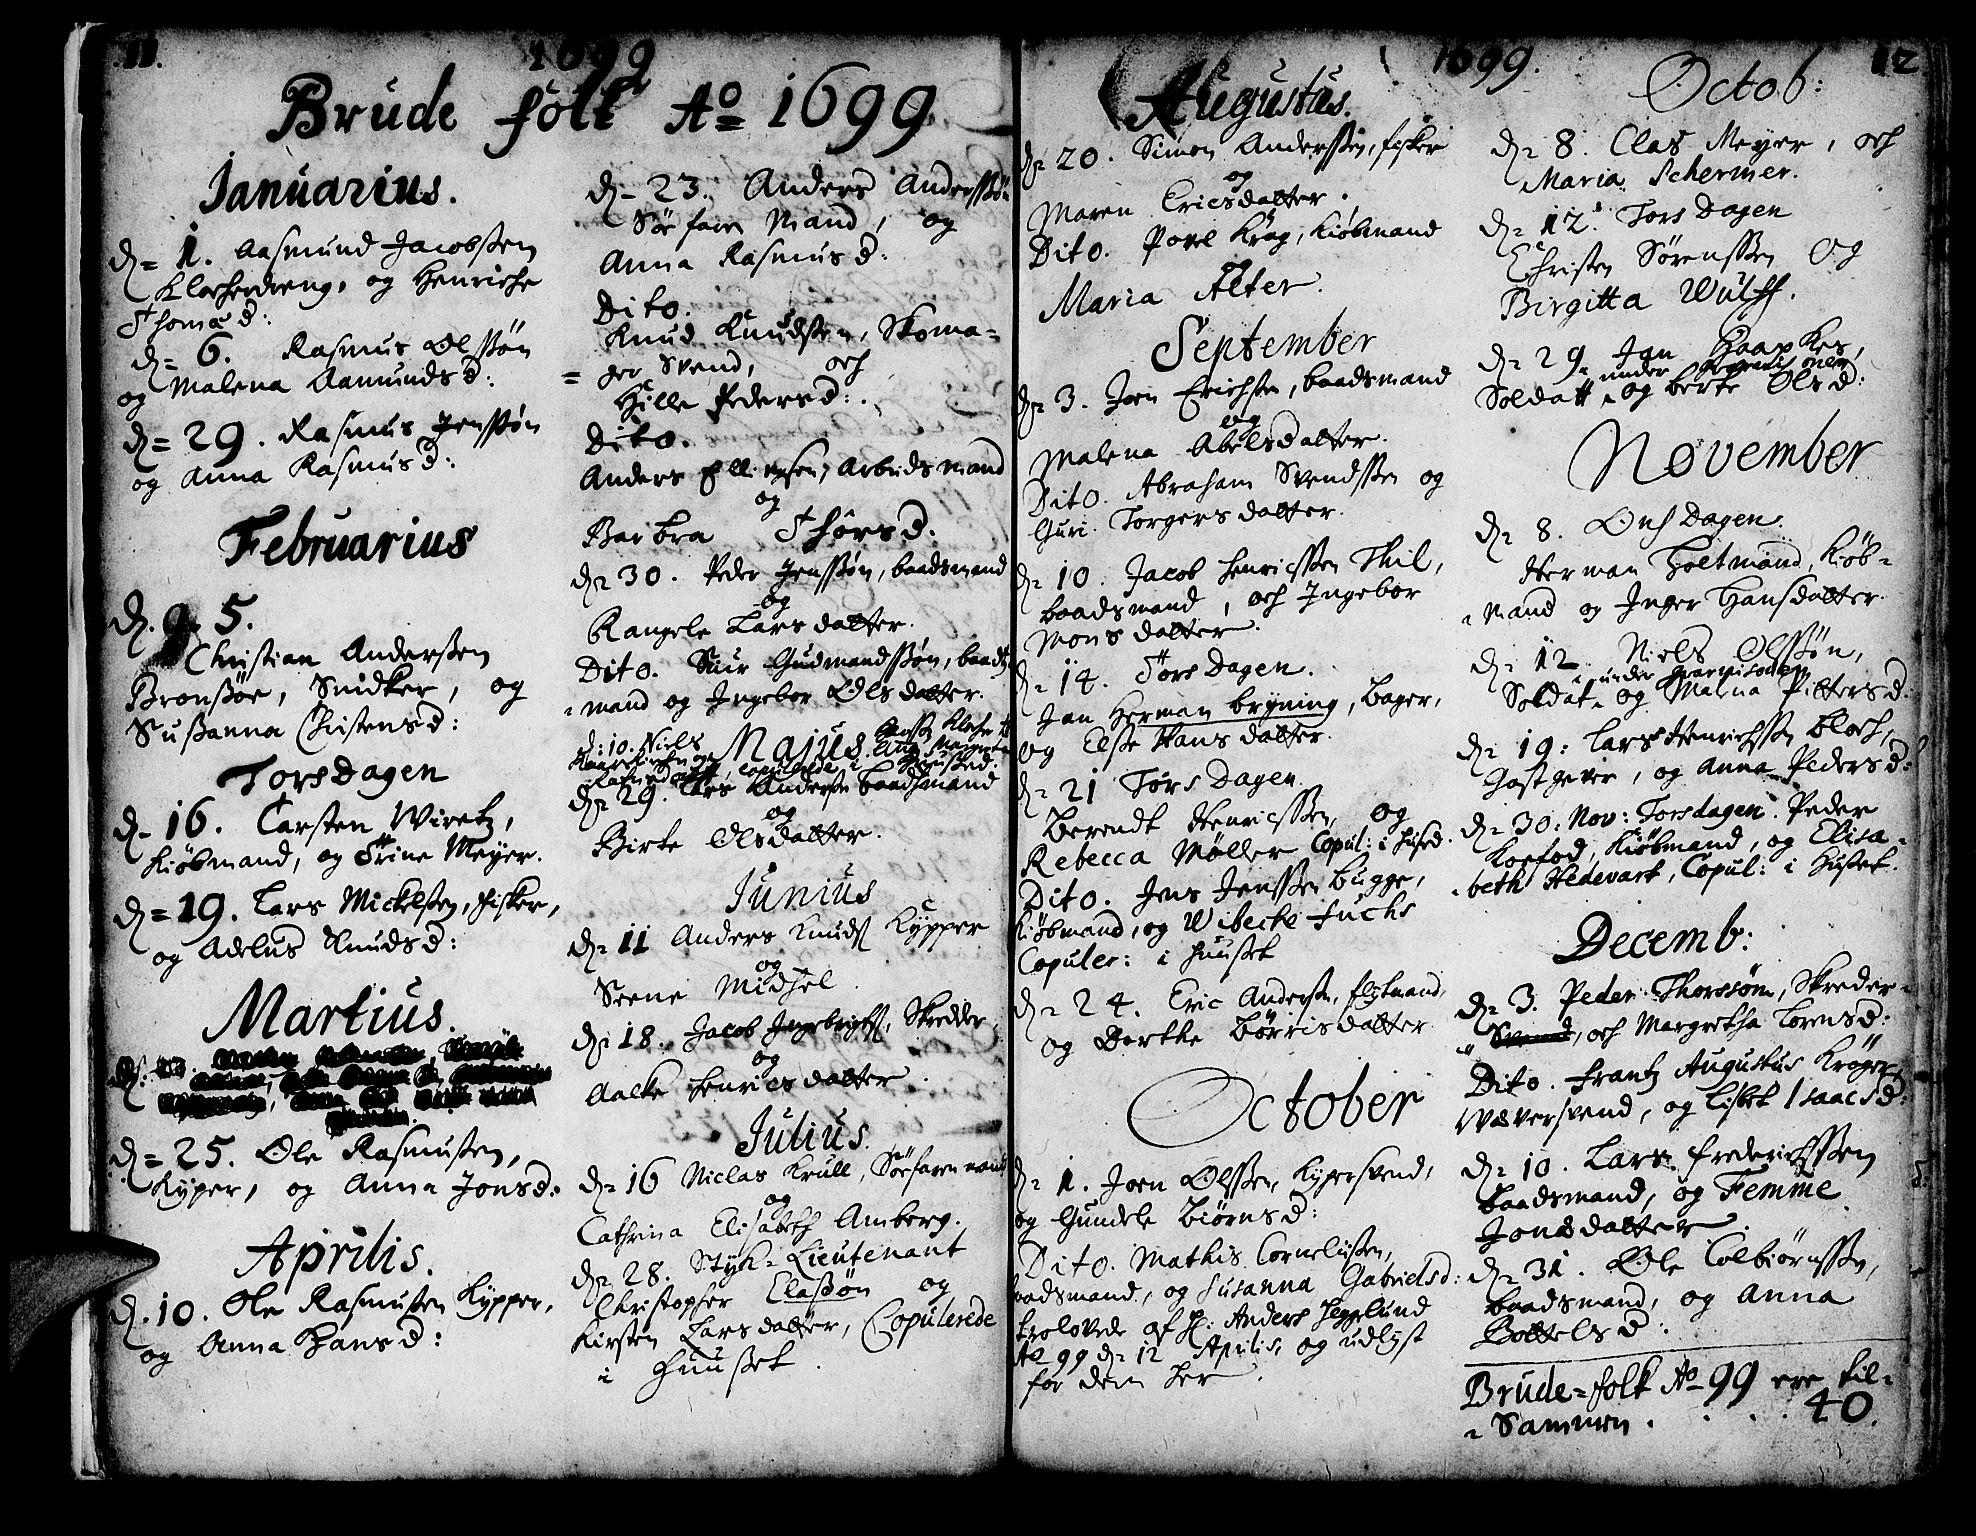 11.
1699
Brude folk Aº 1699
Ianuarius.
d= 1. Aasmund Jacobssen
Klocherdreng, og Henriche
Thomæ d:
d= 6. Rasmus Olssøn
og Malena Aamunds d:
d= 29. Rasmus Jenssøn
og Anna Rasmus d:
Februarius
d. 5.
Christian Anderssen
Bronsøe, Snidker, og
Sussanna Christens d:
Torsdagen
d- 16. Carsten Wiretz,
Kiøbmand, og Trine Meyer.
d= 19. Lars Mickelssen, fisker,
og Adelus Knuds d:
Martius.
d= 25. Ole Rasmussen,
Kyper, og Anna Jons d:
Aprilis.
d. 10. Ole Rasmussen Kypper,
og Anna Hans d:
d- 23. Anders Anderssøn
Søefaren Mand, og
Anna Rasmus d:
Dito.
Knud Knudssen, Skoma=
= ger Svend, och
Hille Peders d:.
Dito.
Anders Ellingsen, Arbeidsmand
og
Barbra Thørs d:
d= 30. Peder Jenssøn, baadsmand
og
Rangele Larsdatter.
Dito. Siur Gudmandssøn, baads
= mand og Ingebor Olsdatter.
d: 10. Niels
Majus
d= 29. Lars Anderssen baadsmand
og
Birte Olsdatter.
Iunius
d= 11 Anders Knuds Kypper
og
Seene Midhel
d= 18. Jacob Ingebrigts, Skredder
og
Aalke Henricsdatter.
Iulius.
d= 16 Niclas Krull, Søefaren mand
og
Cathrina Elisabeth Amberg.
d= 28. Styk=Lieutenant
Christopher Elassøn og
Kirsten Larsdatter, Copulerede
i Huusset.
1699.
12
Augustus.
d= 20. Simon Anderssen, fisker
og
Maren Ericsdatter.
Dito. Povel Krag, Kiøbmand
Maria Alter.
September
d= 3. Joen Erichssen, baadsmand
og
Malena Abelsdatter.
Dito. Abraham Svendssen og
Guri Torgersdatter.
d= 10. Jacob Henricssen Thil,
baadsmand, och Ingebor
Monsdatter.
d= 14. Torsdagen.
Jan Herman bryning, Bager,
og Else Hansdatter.
d= 21 Torsdagen.
Berendt Henricssen, og
Rebecca Møller Copul: i Hused.
Dito. Jens Jenssen Bugge,
Kiøbmand, og Wibecke Fuchs
Copuler: i Huusset
d= 24. Eric Anderssen, fløtmand,
og Dorthe Børrisdatter
October
d= 1. Joen Olssen, Kypersvend,
og Gundele Biørns d:
Dito. Mathis Cornelissen,
baadsmand, og Susanna Gabriels d:
trolovede af H: Anders Hegglund
Aº 99 d= 12 Aprilis, og udlyst
for dem her.
Octob:
d= 8. Clas Meyer, och
Maria Schermer.
d= 12. Torsdagen
Christen Sørenssen og
Birgitta Wulff.
d= 29. Jan Haapkes,
under Guarnisonen
Soldatt og berte Ols d:
November
d= 8. Onsdagen.
Herman Holtmand, Kiøb=
= mand og Inger Hansdatter.
d= 12. Niels Olssøn,
under Guarnisonen
Soldat, og Malna Pitters d:
d= 19: Lars Henrichssen Bloch,
Gestgever, og Anna Peders d:
d= 30: Nov: Torsdagen. Peder
Kofod, Kiøbmand, og Elisa=
= beth Hedevart, Copul: i Huset.
Decemb:
d= 3. Peder Thorssøn, Skreder=
= Svend, och Margretha Lorens d:
Dito. Frantz Augustus Krøger
Wæversvend, og Lisbet Isaacs d:
d= 10. Lars Frederichssen
baadsmand, og Femme
Jonsdatter.
d= 31. Ole Colbiørnssen,
baadsmand, og Anna
Bottels d:
Brude=folk Aº 99 ere til=
= Sammen . . . . 40.